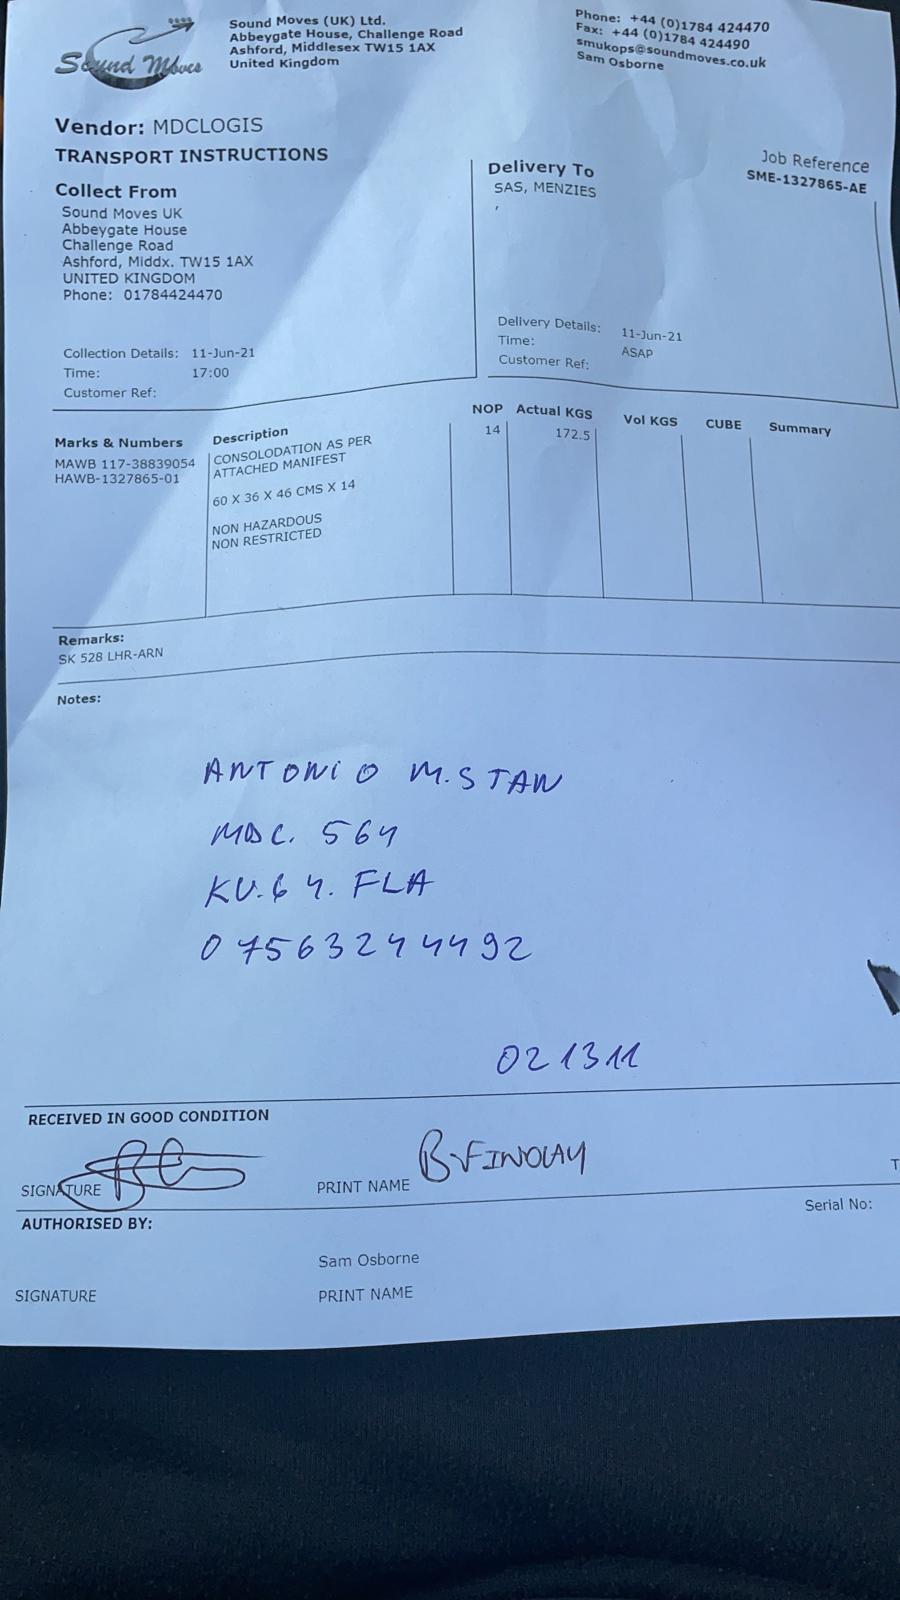 Sound Moves
Sound Moves (UK) Ltd.
Abbeygate House, Challenge Road
Ashford, Middlesex TW15 1AX
United Kingdom
Phone: +44 (0)1784 424470
Fax: +44 (0)1784 424490
smukops@soundmoves.co.uk
Sam Osborne
Vendor: MDCLOGIS
TRANSPORT INSTRUCTIONS
Job Reference
SME-1327865-AE
Collect From
Sound Moves UK
Abbeygate House
Challenge Road
Ashford, Middx. TW15 1AX
UNITED KINGDOM
Phone: 01784424470
Collection Details: 11-Jun-21
Time: 17:00
Customer Ref:
Delivery To
SAS, MENZIES
,
Delivery Details: 11-Jun-21
Time: ASAP
Customer Ref:
Marks & Numbers Description NOP Actual KGS Vol KGS CUBE Summary
MAWB 117-38839054
HAWB-1327865-01
CONSOLODATION AS PER
ATTACHED MANIFEST
60 X 36 X 46 CMS X 14
NON HAZARDOUS
NON RESTRICTED
14 172.5
Remarks:
SK 528 LHR-ARN
Notes:
ANTONIO M. STAN
MDC. 564
KV.64. FLA
07563244492
021311
RECEIVED IN GOOD CONDITION
SIGNATURE PRINT NAME B. FINDLAY T
AUTHORISED BY: Serial No:
Sam Osborne
SIGNATURE PRINT NAME